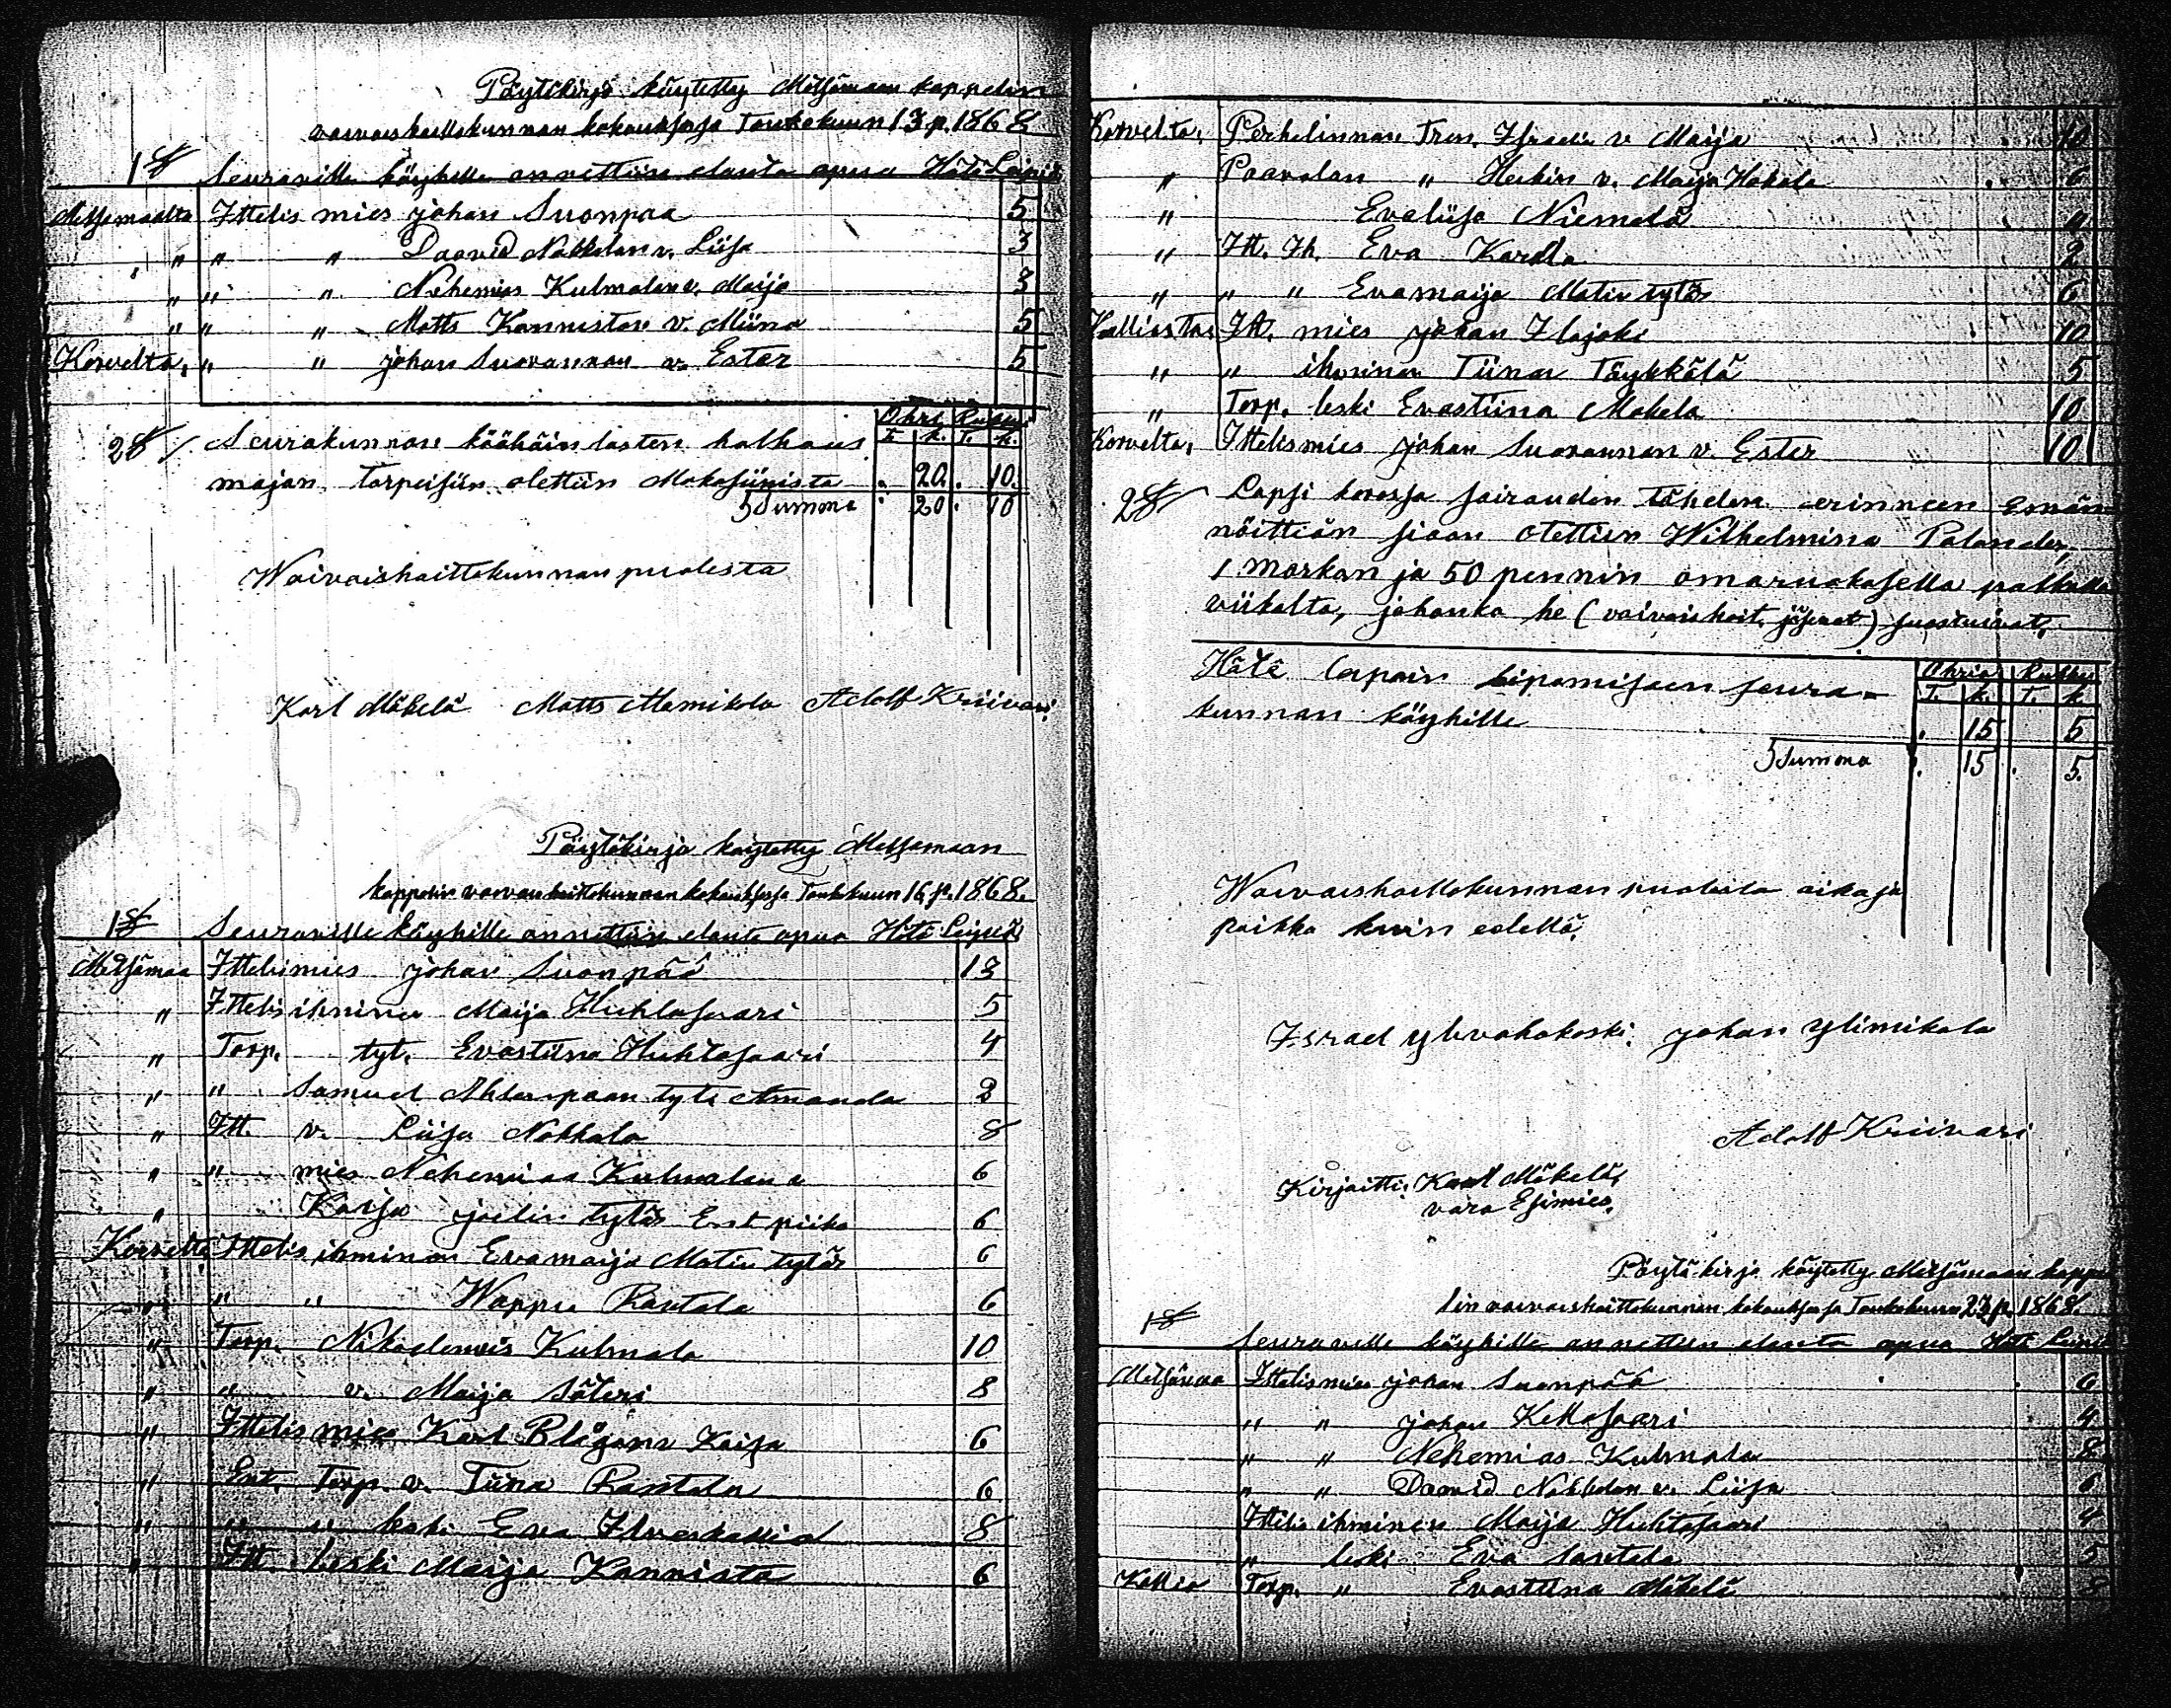 Pöytäkirja käytetty Metsämaan kappelin
vaivaishoitokunnan kokouksessa Toukokuun 13 p. 1868
1 § Seuraville köyhille annettiin elanto apua Hätä Leipiä
Metsämaalta Ittelis mies johan Suonpaa 5
" " " Daavid Nokkolan v. Liisa 3
" " " Nehemias Kulmalan v. Maija 3
" " " Matts Kanniston v. Miina 5
Korvelta, " " johan Suovannan v. Ester 5
Ohri Rukii
2 § Seurakunnan lasten T. k. T. k.
majan tarpeisiin otettiin Makasiinista . 20 . 10.
Summa . 20 . 10
Waivaishoittokunnan puolesta
Karl Mäkelä Matts Mamikola Adolf Kriivari
Pöytäkirja käytetty Metsämaan
kappelin vaivaishoittokunnan kokouksessa Toukokuun 16 p. 1868.
1 § Seuraville köyhille annettiin elanto apua Hätä Leipiä
Metsämaa Ittelismies johan Suonpää 13
" Ittelis ihminen Maija Huhtasaari 5
" Torp. tyt. Evastiina Huhtasaari 4
" " Samuel tyt. Amanda 2
" Itt. v. Liisa Nokkala 8
" " mies Nehemias Kulmalan 6
" Kaisa joelin tytär Ent piika 6
Korvelta Ittelis ihminen Evamaija Matin tytär 6
" " " Wappu Rantala 6
" Torp. Nikodemus Kulmala 10
" " v. Maija Säteri 8
" Ittelis mies Karl Kaisa 6
" Ent. Torp. v. Tiina Rantala 6
" " " leski Eva 8
" Itt. leski Maija Kannisto 6
Korvelta, Perhelinnan Tron. Israelin v. Maija 10
" Paavolan " Heikin v. Maija Hakala 6
" Evaliisa Niemelä "
" Itt. Ih. Eva 2
" " " Evamaija Matin tytär 6
Kalliosta, Itt. mies johan Ilajoki 10
" " ihminen Tiina Töykkälä 5
" Torp. leski Evastiina Mäkelä 10
Korvelta, Ittelismies johan Suovannan v. Ester 10
2 § Lapsi sairauden tähden erinneen Emän
nöittiän siaan otettiin Wilhelmina Palander,
1 markan ja 50 pennin omaruokasella palkalla
viikolta, johonka he (vaivaishoit. jäsenet) suostuivat.
Ohria Rukii
Hätä seura- T. k. T. k.
kunnan köyhille . 15 5
Summa . 15 . 5.
Waivaishoittokunnan puolesta aika ja
paikka kuin edellä.
Israel johan Ylimikola
Adolf Kriivari
Kirjoitti: Karl Mäkelä,
vara Esimies.
Pöytäkirja käytetty Metsämaan kappe
lin vaivaishoittokunnan kokouksessa Toukokuun 23 p. 1868.
1 §
Seuraville köyhille annettiin elanto apua Hätä Leipiä
Metsämaa Ittelismies johan Suonpää 6
" " johan Kettosaari 4
" " Nehemias Kulmala 8
" " Daavid Nokkolan v. Liisa 6
Ittelis ihminen Maija Huhtasaari 4
" leski Eva Santala 5
Kallio Torp. " Evastiina Mäkelä 8